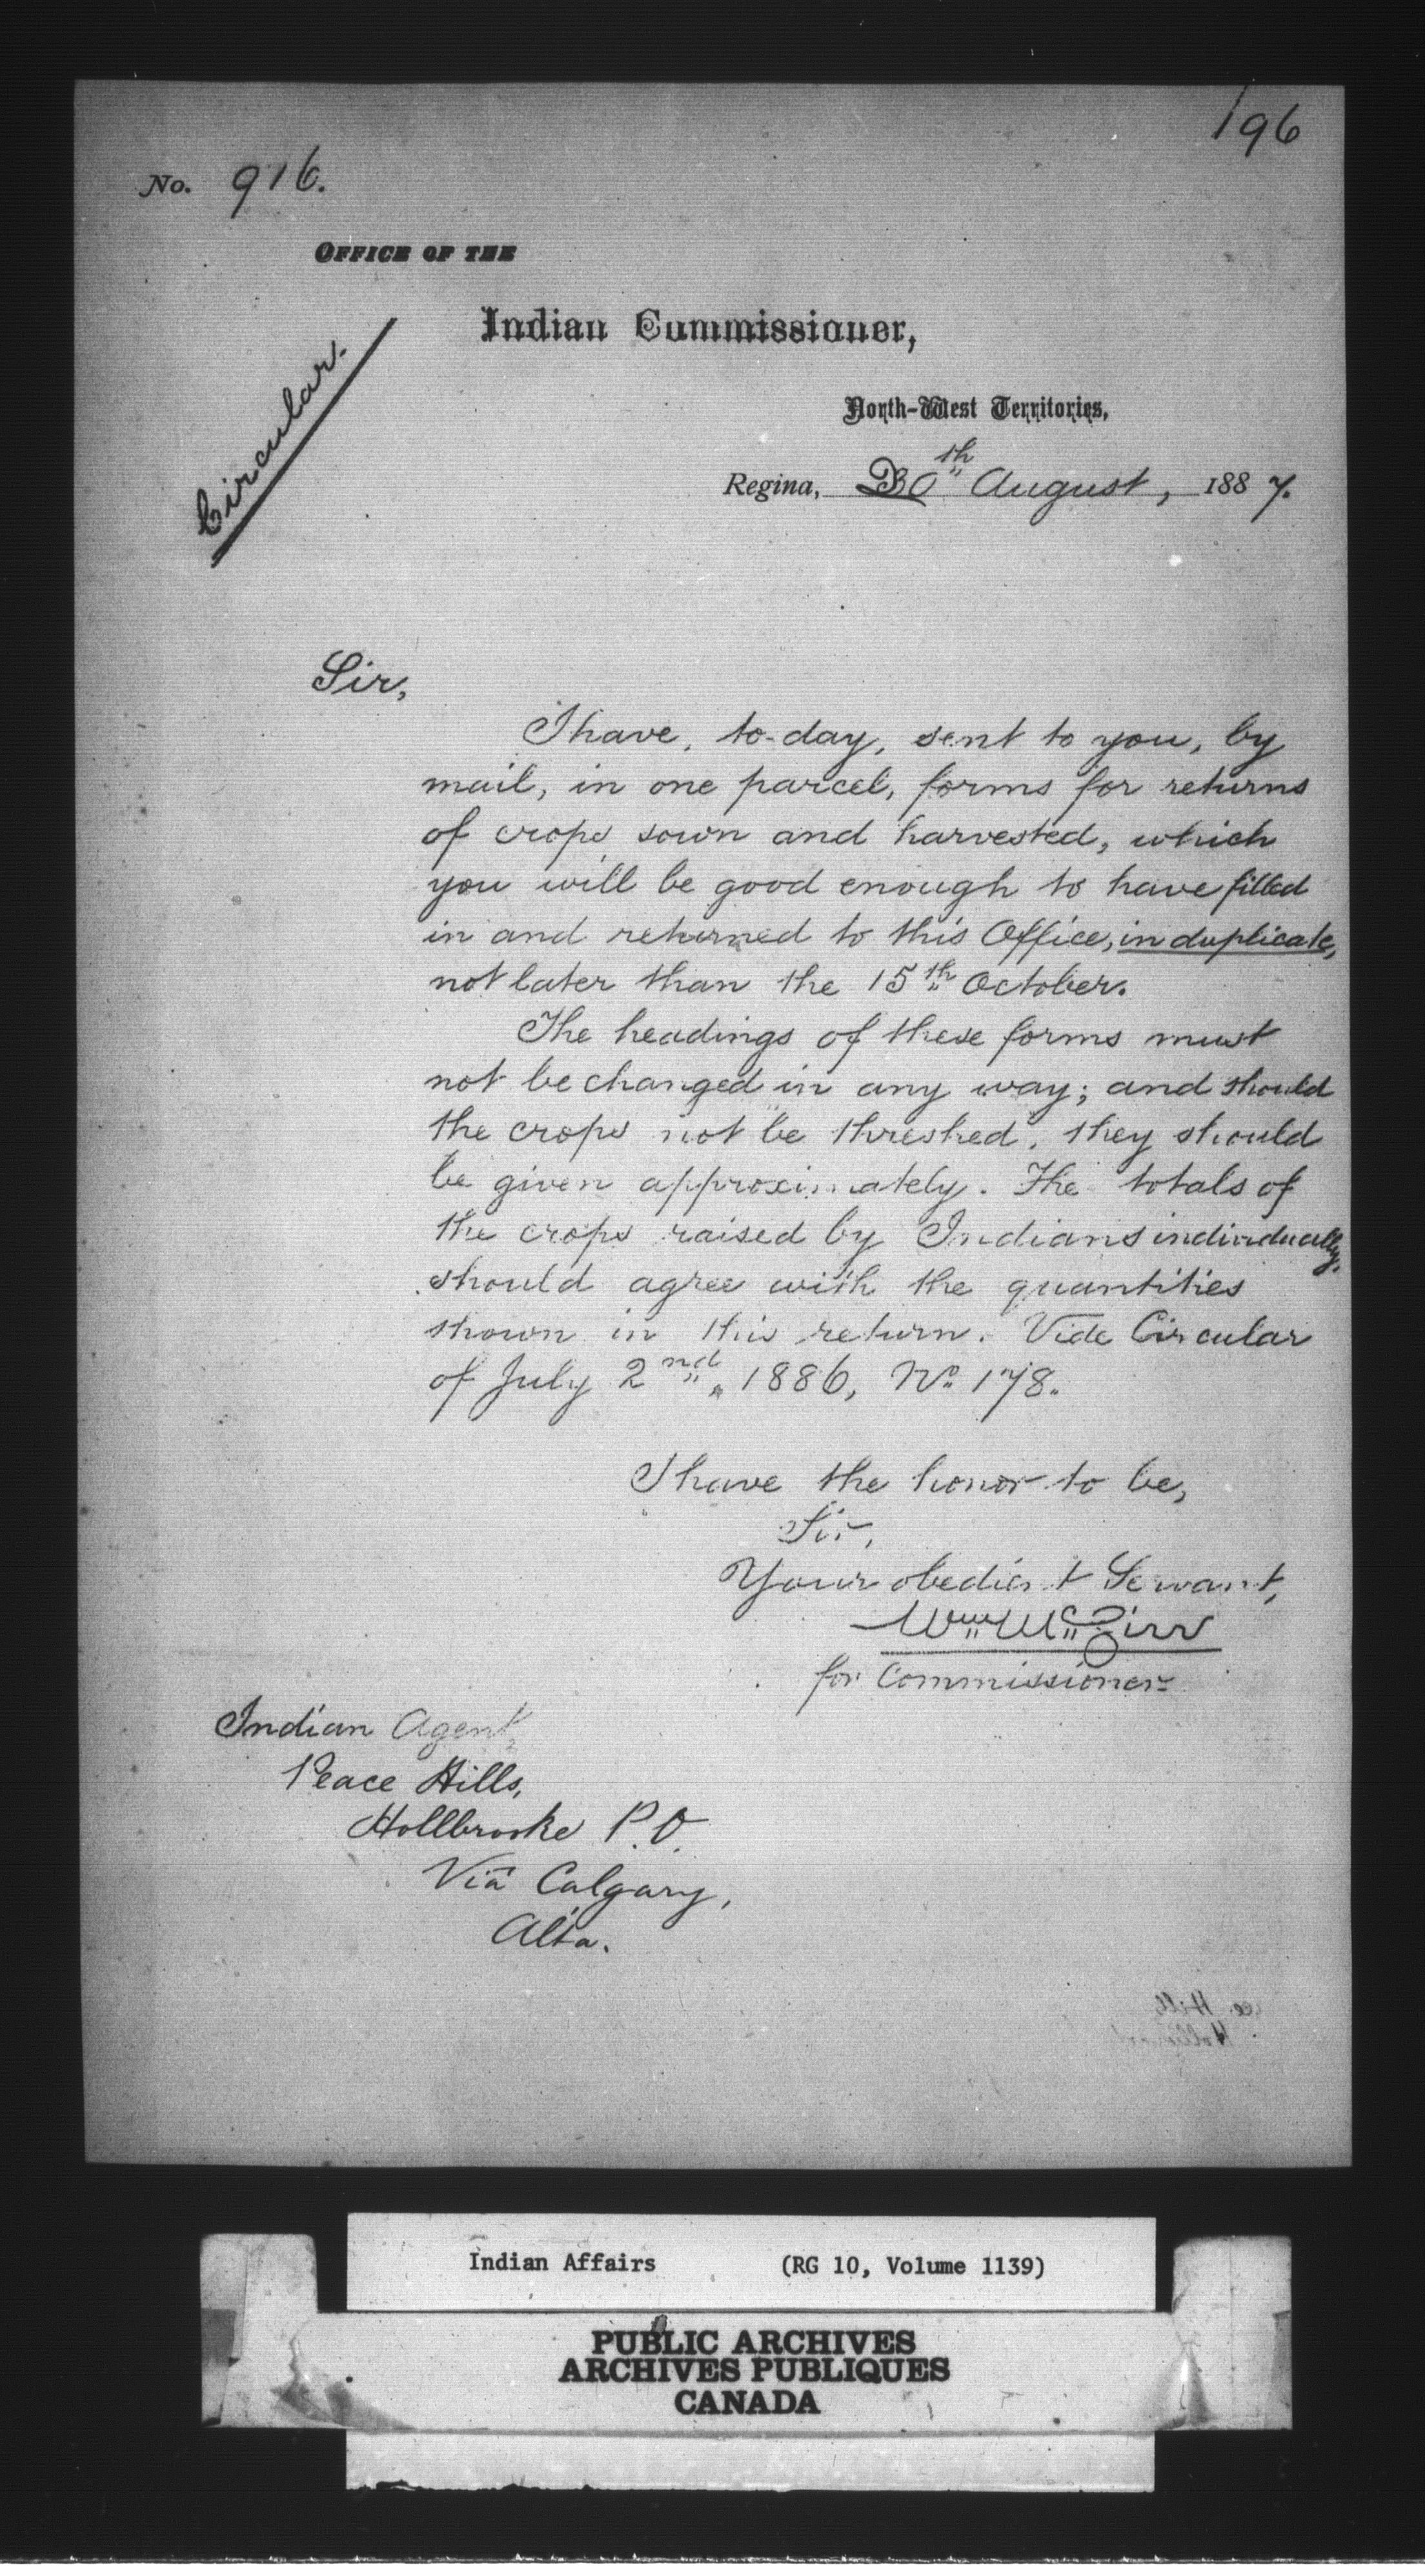 196
No. 916.
OFFICE OF THE
Indian Commissioner,
North-West Territories,
Circular.
Regina, 30th August, 1887.
Sir,
I have, to-day, sent to you, by
mail, in one parcel, forms for returns
of crops sown and harvested, which
you will be good enough to have filled
in and returned to this Office, in duplicate,
not later than the 15th October.
The headings of these forms must
not be changed in any way; and should
the crops not be threshed, they should
be given approximately. The totals of
the crops raised by Indians individually,
should agree with the quantities
shown in this return. Vide Circular
of July 2nd, 1886, No 178.
I have the honor to be,
Sir,
Your obedient Servant,
Wm McGirr
for Commissioner
Indian Agent,
Peace Hills,
Hollbrooke P.O.
Via Calgary,
Alta.
Indian Affairs (RG 10, Volume 1139)
PUBLIC ARCHIVES
ARCHIVES PUBLIQUES
CANADA